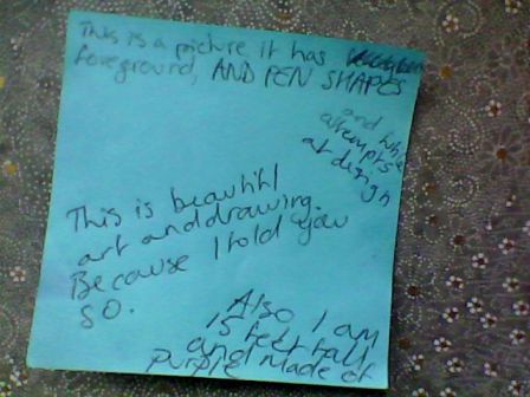 This is a picture it has
foreground, AND PEN SHAPES
and futile
attempts
at design
This is beautiful
art and drawing.
Because I told you
so.
Also I am
15 feet tall
and made of
purple